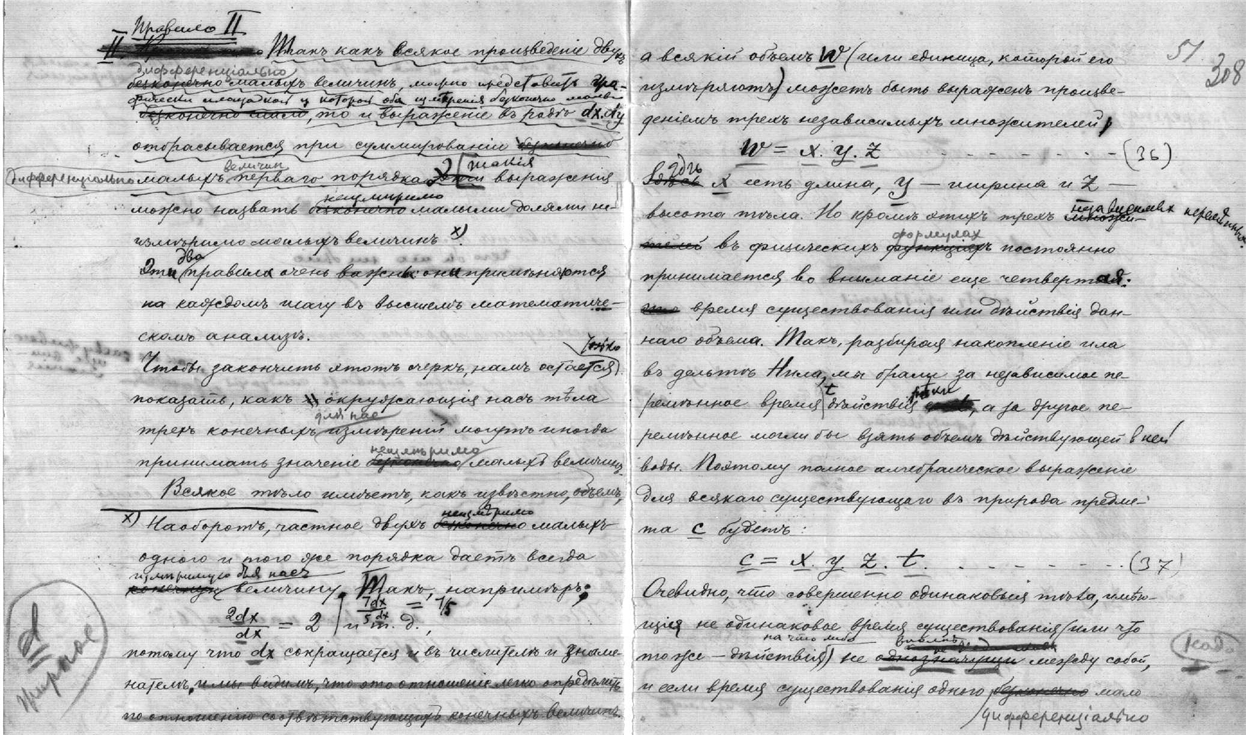 Правило II
II Такъ какъ всякое произведеніе двухъ
дифференціально
безконечно малыхъ величинъ, можно представить гра-
фически площадкой у которой оба измѣренія безконечно малы
безконечно мало, то и выраженіе въ родѣ dx.dy
отбрасывается при суммированіи безконечно
дифференціально малыхъ величин перваго порядка. такія выраженія
неизмѣримо
можно назвать безконечно малыми долями не-
измѣримо малыхъ величинъ x)
Эти два правила очень важны они примѣняются
на каждомъ шагу въ высшемъ математиче-
скомъ анализѣ.
только
Чтобы закончить этотъ очеркъ, намъ остается
показать, какъ окружающія насъ тѣла
для нас
трехъ конечныхъ измѣреній могутъ иногда
неизмѣримо
принимать значеніе безконечно малыхъ величинъ
Всякое тѣло имѣетъ, какъ извѣстно, объемъ,
неизмѣримо
x) Наоборотъ, частное двухъ безконечно малыхъ
одного и того же порядка даетъ всегда
измѣримую для насъ
конечную величину. Такъ, напримѣръ:
2dx/dx = 2, 7dx/5dx = 7/5 и т. д.,
потому что dx сокращается и въ числителѣ и знаме-
нателѣ, и мы видимъ, что это отношеніе легко опредѣлить
по отношенію соотвѣтствующихъ конечныхъ величинъ.
d
жирное
51
308
а всякій объемъ w (или единица, которой его
измѣряютъ) можетъ быть выраженъ произве-
деніемъ трехъ независимыхъ множителей,
w = x. y. z - - - - - - - - - (36)
гдѣ
Здѣсь x есть длина, y — ширина и z —
высота тѣла. Но кромѣ этихъ трехъ независимых перемѣнных
формулах
въ физическихъ функціяхъ постоянно
принимается во вниманіе еще четвертая:
время существованія или дѣйствія дан-
наго объема. Такъ, разбирая накопленіе ила
въ дельтѣ Нила, мы брали за независимое пе-
ремѣнное время t дѣйствія рѣки, а за другое пе-
ремѣнное могли бы взять объемъ дѣйствующей в ней
воды. Поэтому полное алгебраическое выраженіе
для всякаго существующаго въ природѣ предме-
та c будетъ:
c = x y z. t. - - - - - - - - (37)
Очевидно, что совершенно одинаковыя тѣла, имѣю-
щія не одинаковое время существованія (или что
на что либо
тоже — дѣйствія) не однозначущи между собой,
и если время существованія одного безконечно мало
дифференціально